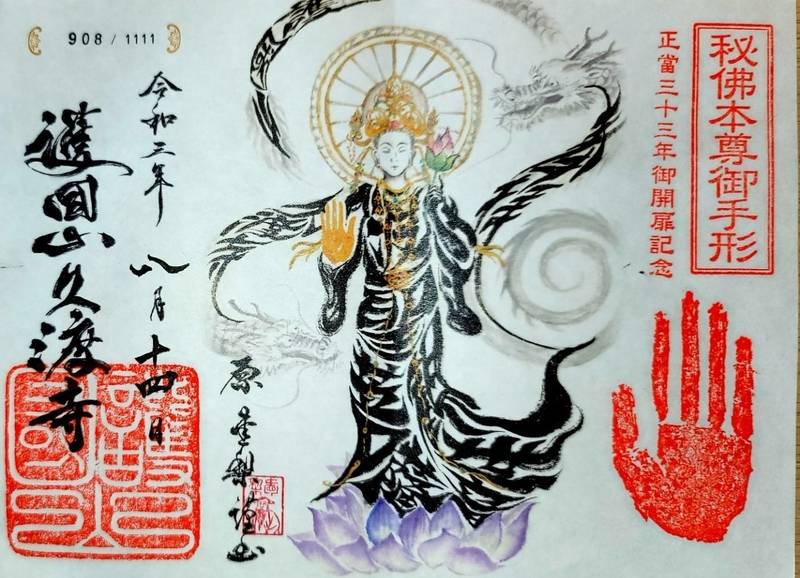 秘佛本尊御手形
正當三十三年御開扉記念
908 / 1111
令和三年
八月十四日
護國山久渡寺